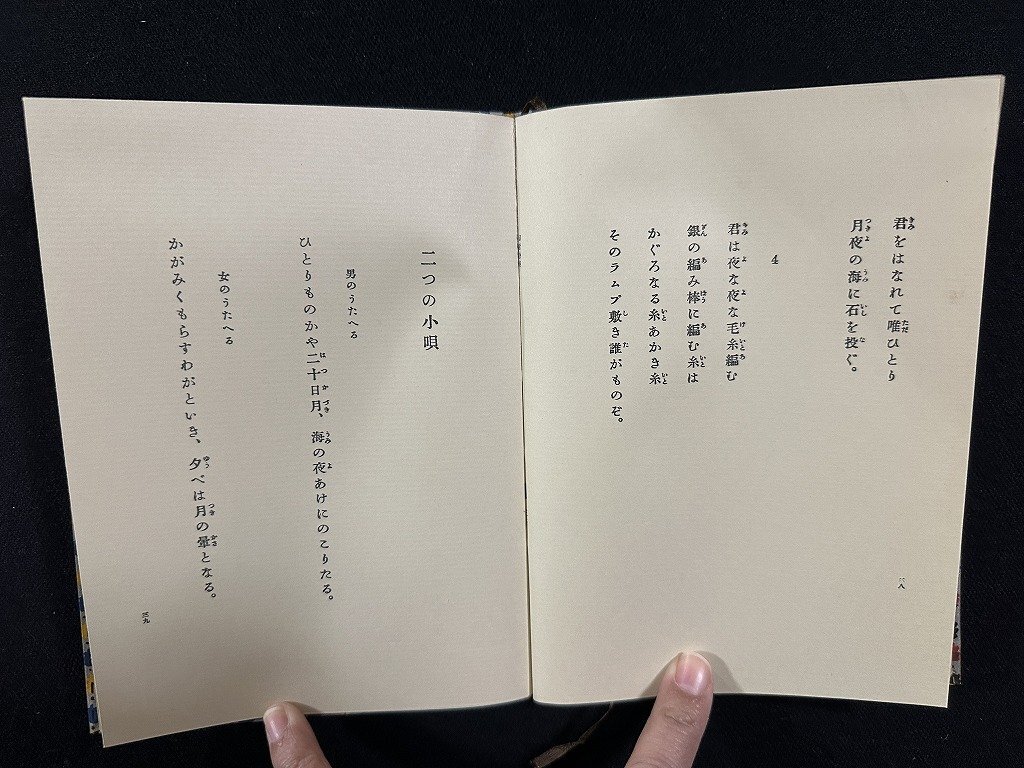 君をはなれて唯ひとり
月夜の海に石を投ぐ。
4
君は夜な夜な毛糸編む
銀の編み棒に編む糸は
かぐろなる糸あかき糸
そのラムプ敷き誰がものぞ。
二つの小唄
男のうたへる
ひとりものかや二十日月、海の夜あけにのこりたる。
女のうたへる
かがみくもらすわがといき、夕べは月の暈となる。